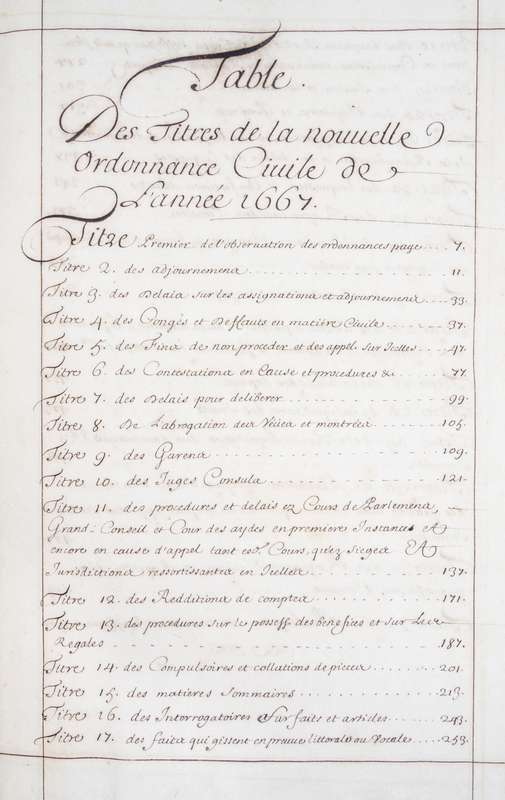 Table.
Des Titres de la nouuelle
Ordonnance Ciuile de
L'année 1667.
Titre Premier de l'observation des ordonnances page .... 7.
Titre 2. des adjournemens .......... 11.
Titre 3. des Delais sur les assignations et adjournemens .... 33.
Titre 4. des Congés et Deffauts en matiere Ciuile ....... 37.
Titre 5. des Fins de non proceder et des appel. Sur Icelles .... 47.
Titre 6. des Contestations en Cause et procedures &c. ..... 77.
Titre 7. des Delais pour deliberer .......... 99.
Titre 8. De L'abrogation des Vëues et montrées ....... 105.
Titre 9. des Garens .......... 109.
Titre 10. des Juges Consuls .......... 121.
Titre 11. des procedures et delais ez Cours de Parlemens, —
Grand-Conseil et Cour des aydes en premiere Instances Et
encore en cause d'appel tant esd. Cours, qu'ez sieges Et
Jurisdictions ressortissantes en Icelles .......... 137.
Titre 12. des Redditions de comptes .......... 171.
Titre 13. des procedures sur le possess. des benefices et sur Les
Regales .......... 187.
Titre 14. des Compulsoires et collations de pieces ....... 201.
Titre 15. des matieres Sommaires .......... 213.
Titre 16. des Interrogatoires Sur faits et articles ...... 243.
Titre 17. des faits qui gissent en preuue littorale ou Vocale .... 253.